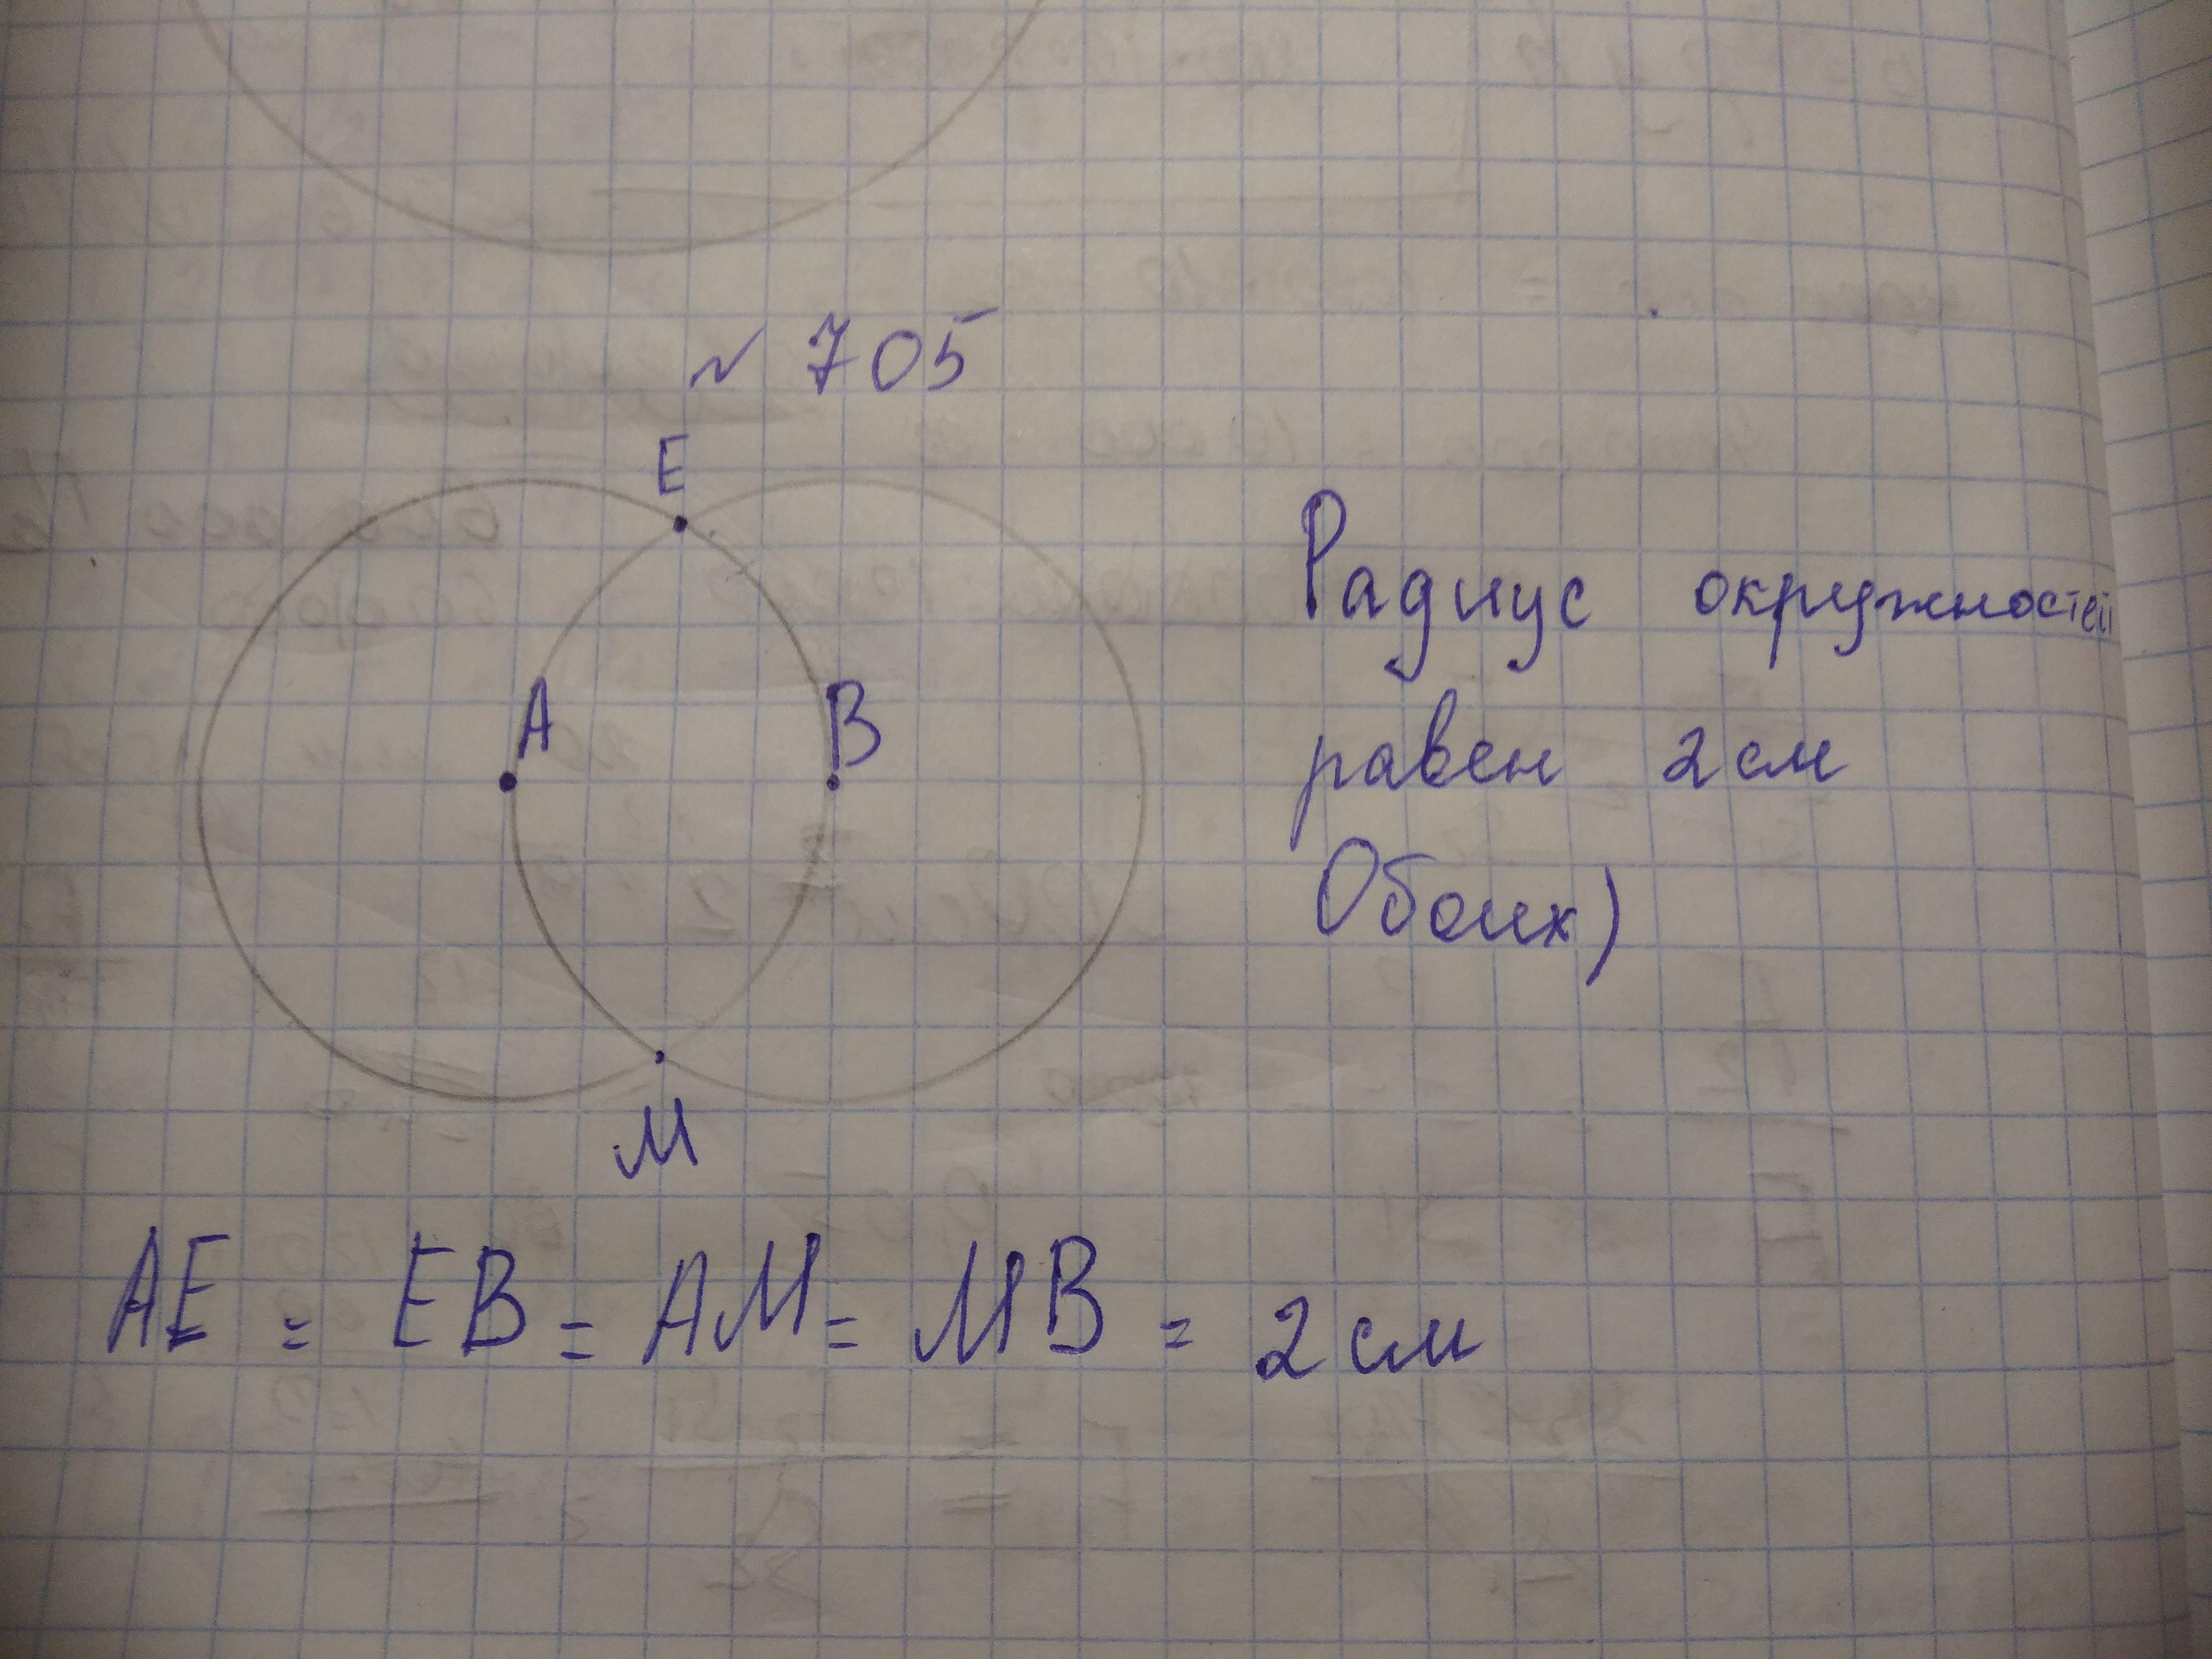 № 705
E
A B
Радиус окружностей
равен 2 см
Обоих)
M
AE = EB = AM = MB = 2 см